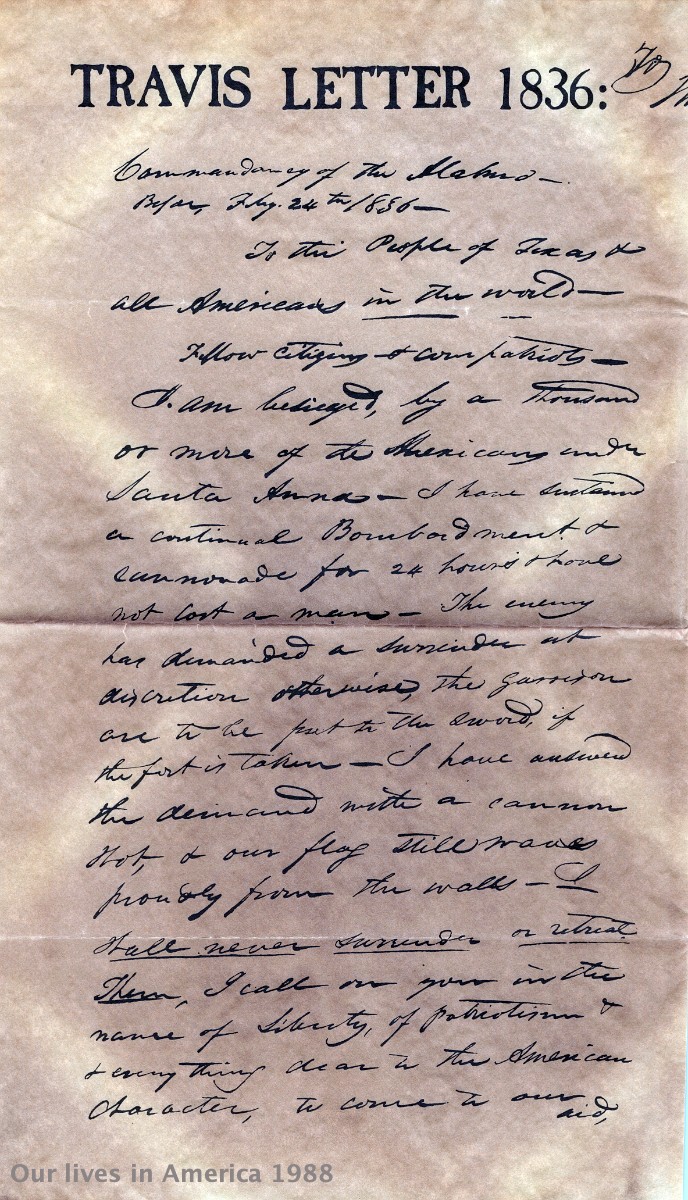 TRAVIS LETTER 1836:
To
Commandancy of the Alamo—
Bejar, Feby. 24th 1836—
To the People of Texas &
all Americans in the world—
Fellow citizens & compatriots—
I am besieged, by a thousand
or more of the Mexicans under
Santa Anna— I have sustained
a continual Bombardment &
cannonade for 24 hours & have
not lost a man— The enemy
has demanded a surrender at
discretion otherwise, the garrison
are to be put to the sword, if
the fort is taken— I have answered
the demand with a cannon
shot, & our flag still waves
proudly from the walls— I
shall never surrender or retreat
Then, I call on you in the
name of Liberty, of patriotism &
& everything dear to the American
character, to come to our
aid,
Our lives in America 1988